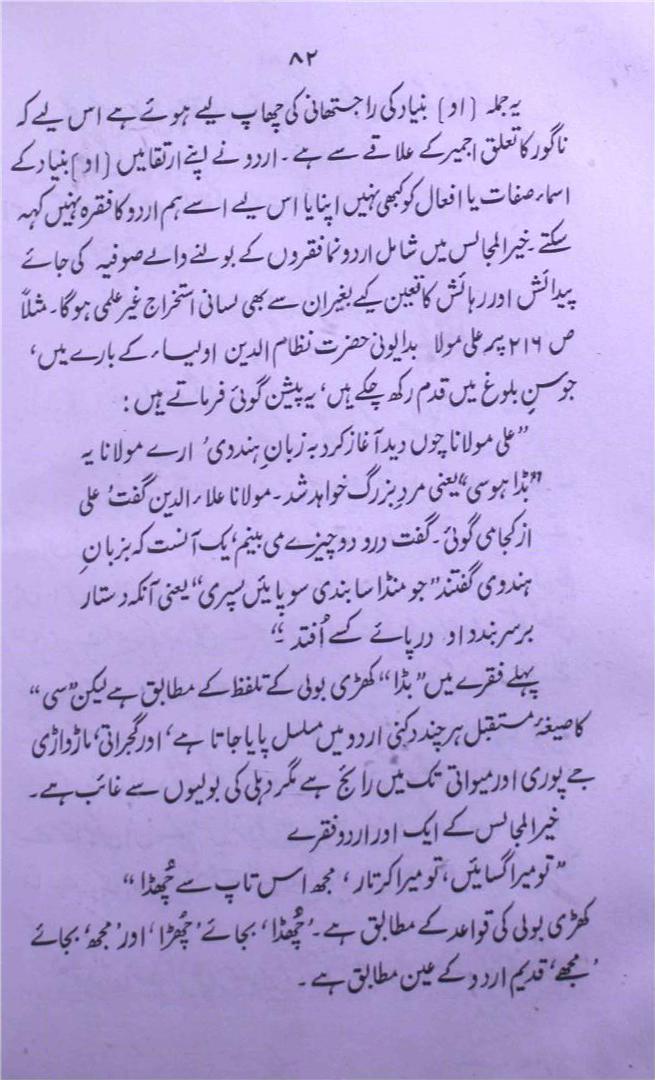 ۸۲
یہ جملہ [او] بنیاد کی راجستھانی کی چھاپ لیے ہوئے ہے اس لیے کہ
ناگور کا تعلق اجمیر کے علاقے سے ہے۔ اردو نے اپنے ارتقا میں [او] بنیاد کے
اسماء صفات یا افعال کو کبھی نہیں اپنایا اس لیے اسے ہم اردو کا فقرہ نہیں کہہ
سکتے۔ خیر المجالس میں شامل اردو نما فقروں کے بولنے والے صوفیہ کی جائے
پیدائش اور رہائش کا تعین کیے بغیر ان سے بھی لسانی استخراج غیر علمی ہوگا۔ مثلاً
ص ۲۱۶ پر علی مولا بدایونی حضرت نظام الدین اولیاء کے بارے میں،
جو سنِ بلوغ میں قدم رکھ چکے ہیں، یہ پیشن گوئی فرماتے ہیں:
”علی مولانا چوں دید آغاز کرد بہ زبانِ ہندوی ’ ارے مولانا یہ
”بڈا ہوسی“ یعنی مردِ بزرگ خواہد شد۔ مولانا علاء الدین گفت ’ علی
از کجا می گوئی۔ گفت درو دو چیزے می بینم، یک آنست کہ بزبانِ
ہندوی گفتند ”جو منڈا سا بندی سو پائیں پسری“ یعنی آنکہ دستار
بر سر بندد او در پائے کسے اُفتد۔“
پہلے فقرے میں ”بڈا“ کھڑی بولی کے تلفظ کے مطابق ہے لیکن ”سی“
کا صیغۂ مستقبل ہر چند دکنی اردو میں مسلسل پایا جاتا ہے، اور گجراتی، ماڑواڑی
جے پوری اور میواتی تک میں رائج ہے مگر دہلی کی بولیوں سے غائب ہے۔
خیر المجالس کے ایک اور اردو فقرے
”تو میرا گسائیں، تو میرا کرتار، مجھ اس تاپ سے چُھڈا“
کھڑی بولی کی قواعد کے مطابق ہے۔ ’چُھڈا‘ بجائے ’چُھڑا‘ اور ’مجھ‘ بجائے
’مجھے‘ قدیم اردو کے عین مطابق ہے۔